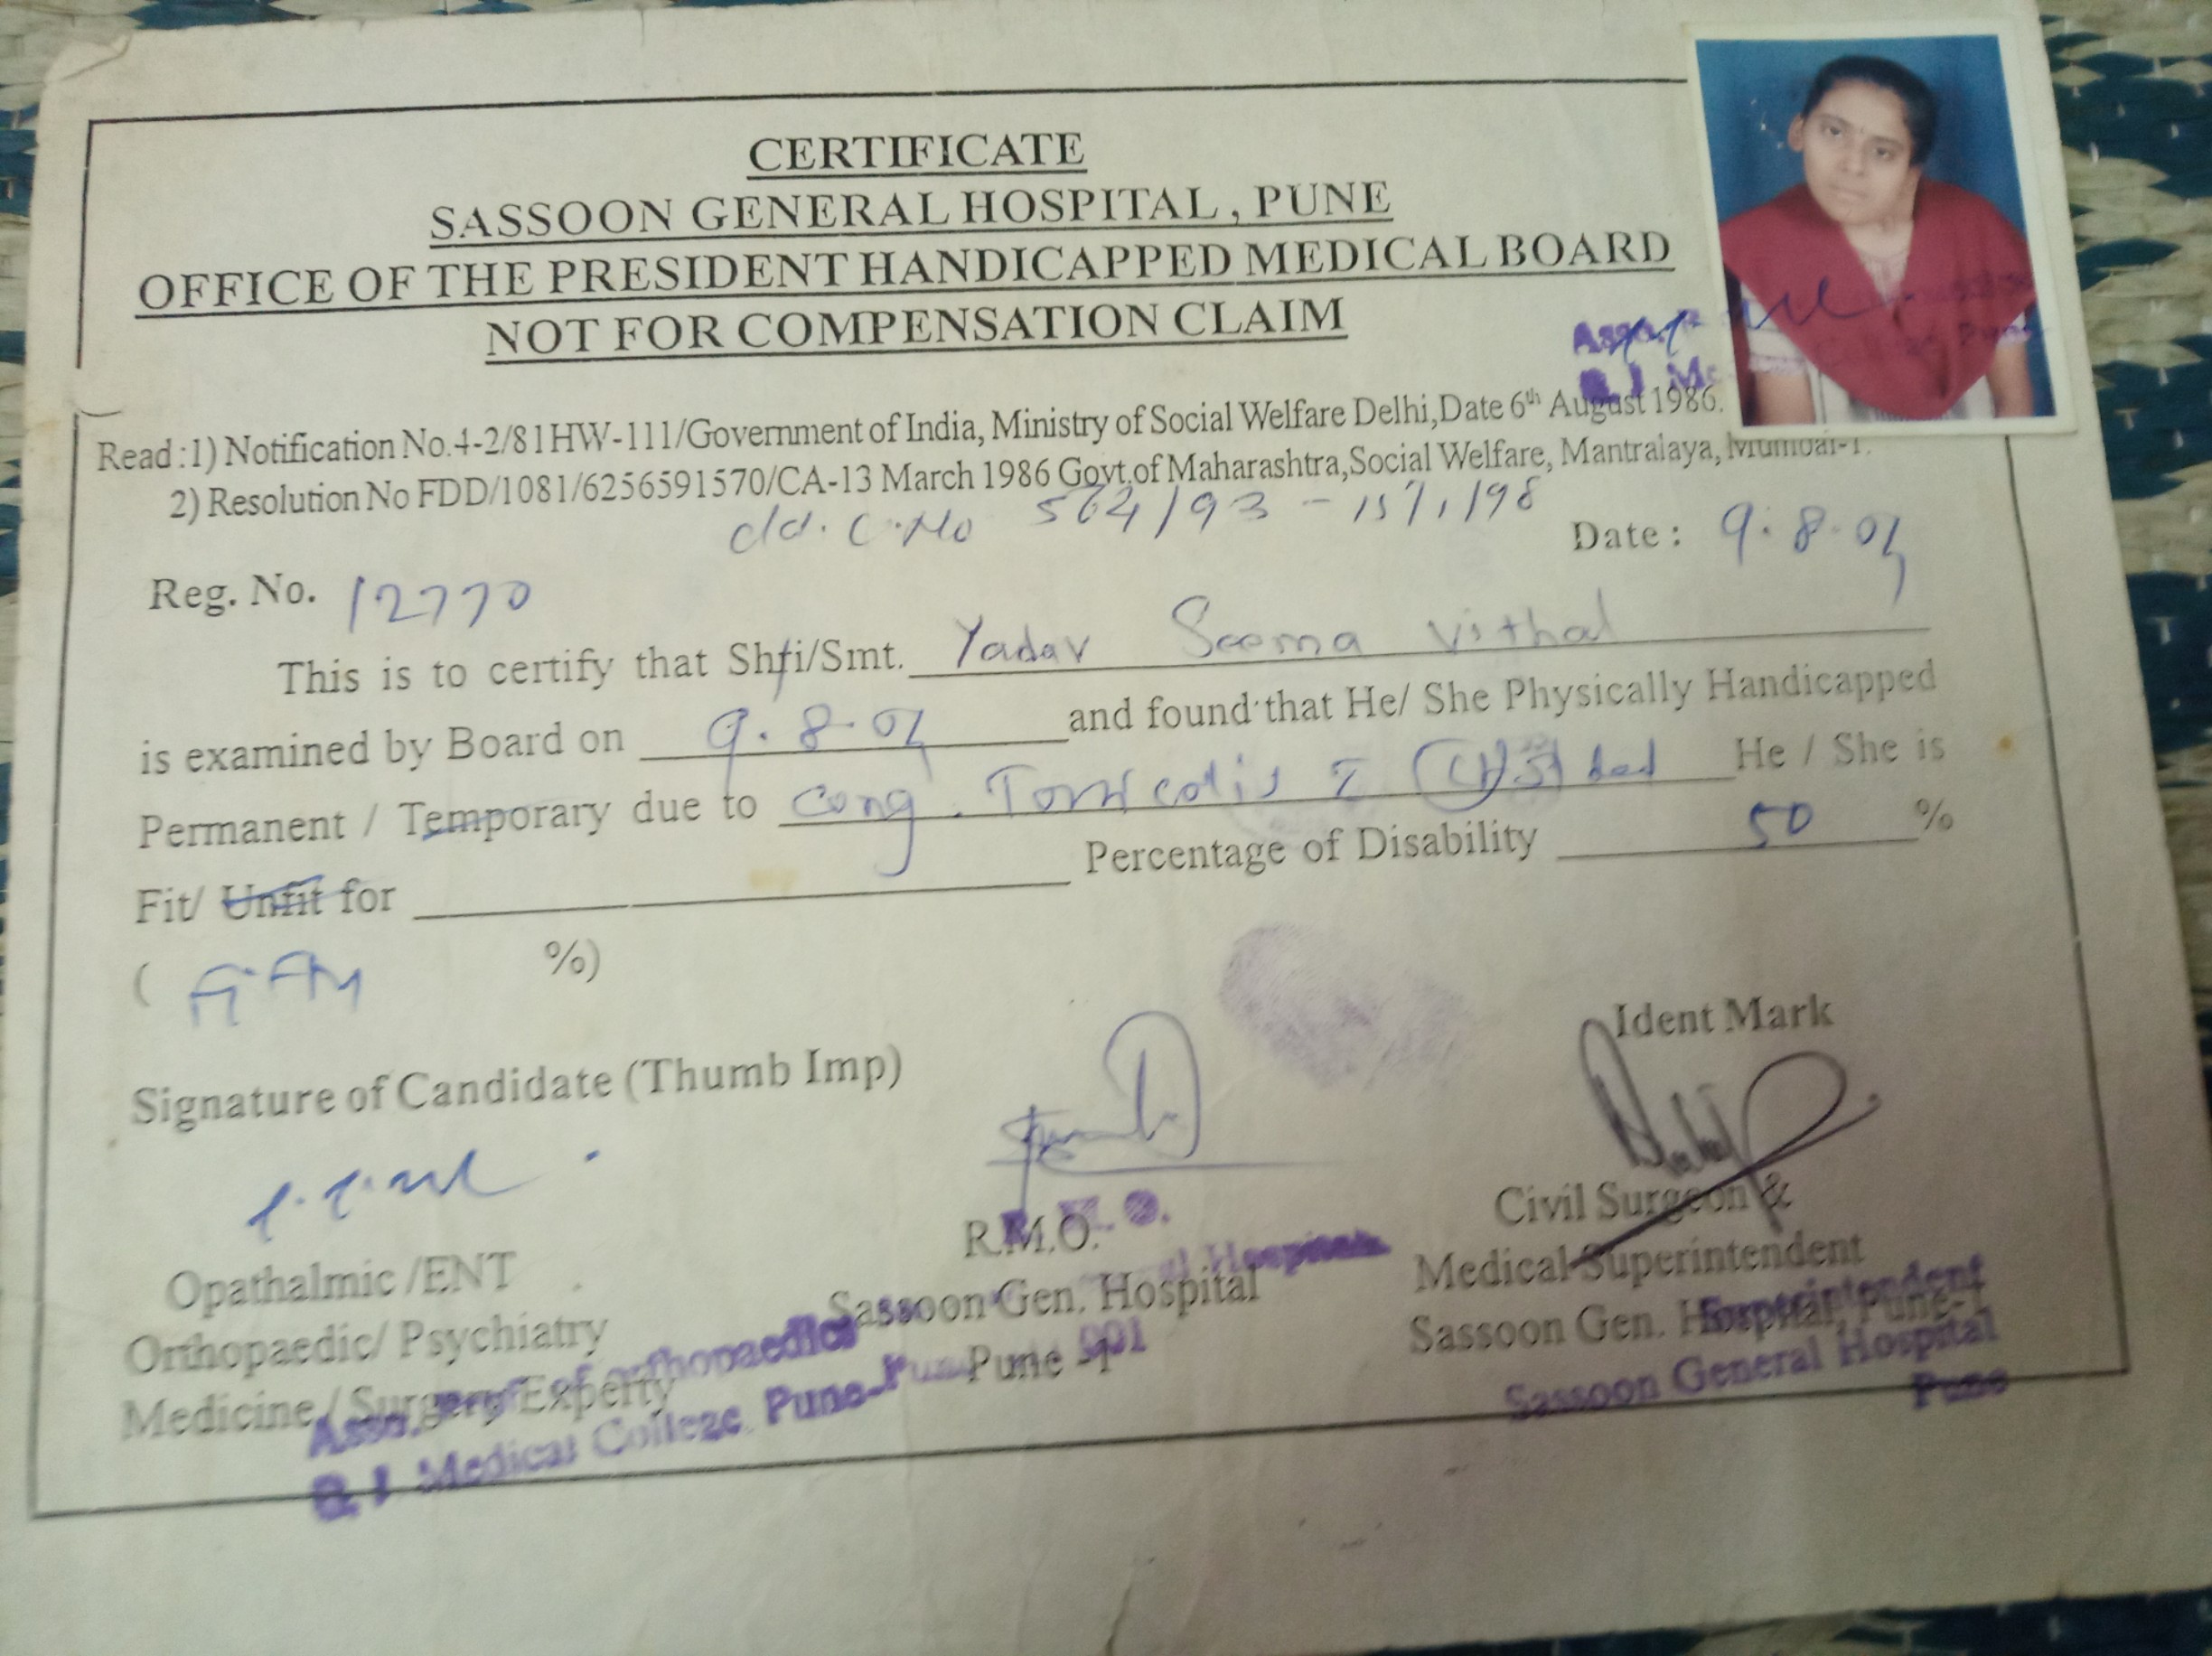 CERTIFICATE
SASSOON GENERAL HOSPITAL, PUNE
OFFICE OF THE PRESIDENT HANDICAPPED MEDICAL BOARD
NOT FOR COMPENSATION CLAIM
Read :1) Notification No.4-2/81HW-111/Government of India, Ministry of Social Welfare Delhi,Date 6th August 1986.
2) Resolution No FDD/1081/6256591570/CA-13 March 1986 Govt.of Maharashtra,Social Welfare, Mantralaya, Mumbai-1.
C.No 564/93 - 15/1/98
Date : 9.8.04
Reg. No. 12770
This is to certify that Shri/Smt. Yadav Seema Vithal
is examined by Board on 9.8.04 and found that He/ She Physically Handicapped
Permanent / Temporary due to Cong. Torticolis He / She is
Fit/ Unfit for Percentage of Disability 50 %
( Fifty %)
Ident Mark
Signature of Candidate (Thumb Imp)
Opathalmic /ENT
Orthopaedic/ Psychiatry
Medicine / Surgery Experty
Asso. Prof of orthopaedics
B. J. Medical College, Pune-
R.M.O.
Sassoon Gen. Hospital
Pune -1
Civil Surgeon &
Medical Superintendent
Sassoon Gen. Hospital, Pune-1
Superintendent
Sassoon General Hospital
Pune